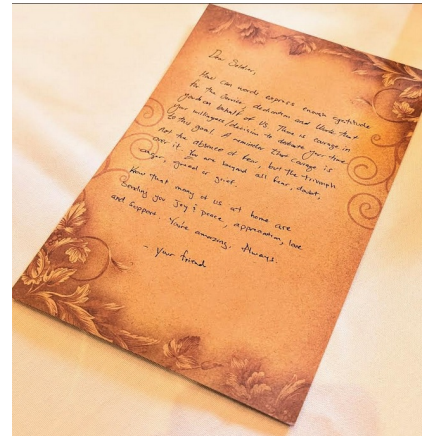 Dear Soldier,
How can words express enough gratitude
for the service, dedication and work that
you do on behalf of us. There is courage in
your willingness/decision to dedicate your time
to this goal. A reminder that courage is
not the absence of fear, but the triumph
over it. You are beyond all fear, doubt,
anger, greed or grief.
Know that many of us at home are
sending you joy & peace, appreciation, love
and support. You're amazing. Always.
- Your friend